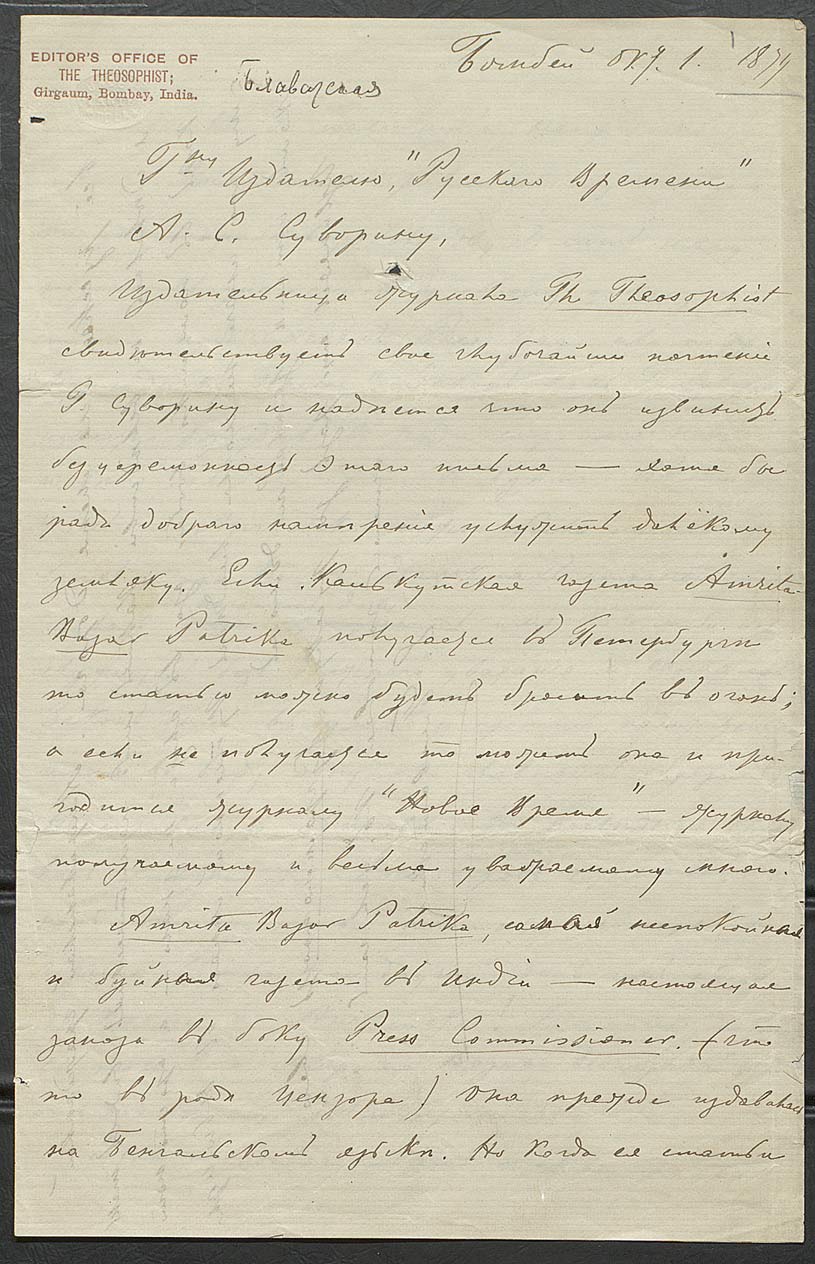 EDITOR'S OFFICE OF
THE THEOSOPHIST;
Girgaum, Bombay, India.
Блаватская
Бомбей окт. 1. 1879
Гну Издателю, "Русскаго Времени"
А. С. Суворину,
Издательница журнала Th Theosophist
свидѣтельствуетъ свое глубочайши почтеніе
Г. Суворину и надѣется что онъ извинитъ
безцеремонность этаго письма — хотя бы
ради добраго намѣренія услужить далёкому
земляку. Если Калькутская газета Amrita-
Bazar Patrika получается въ Петербургѣ
то статью можно будетъ бросить въ огонь;
а если не получается то можетъ она и при-
годится журналу "Новое Время" — журналу
получаемому и весьма уважаемому мною.
Amrita Bazar Patrika, самая неспокойная
и буйная газета въ Индіи — настоящая
заноза въ боку Press Commissioner. (что
то въ родѣ цензора) Она прежде издавалась
на Бенгальскомъ языкѣ. Но когда ея статьи